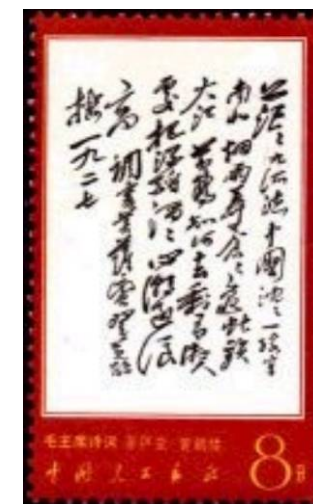 茫〻九派流中國沈〻一線穿
南北烟雨莽蒼〻龜蛇鎖
大江 黄鹤知何去剩有游人
處把酒酹滔〻心潮逐浪
高 調寄菩薩蛮登黄鹤
楼 一九二七
毛主席诗词 菩萨蛮 黄鹤楼
中国人民邮政 8分